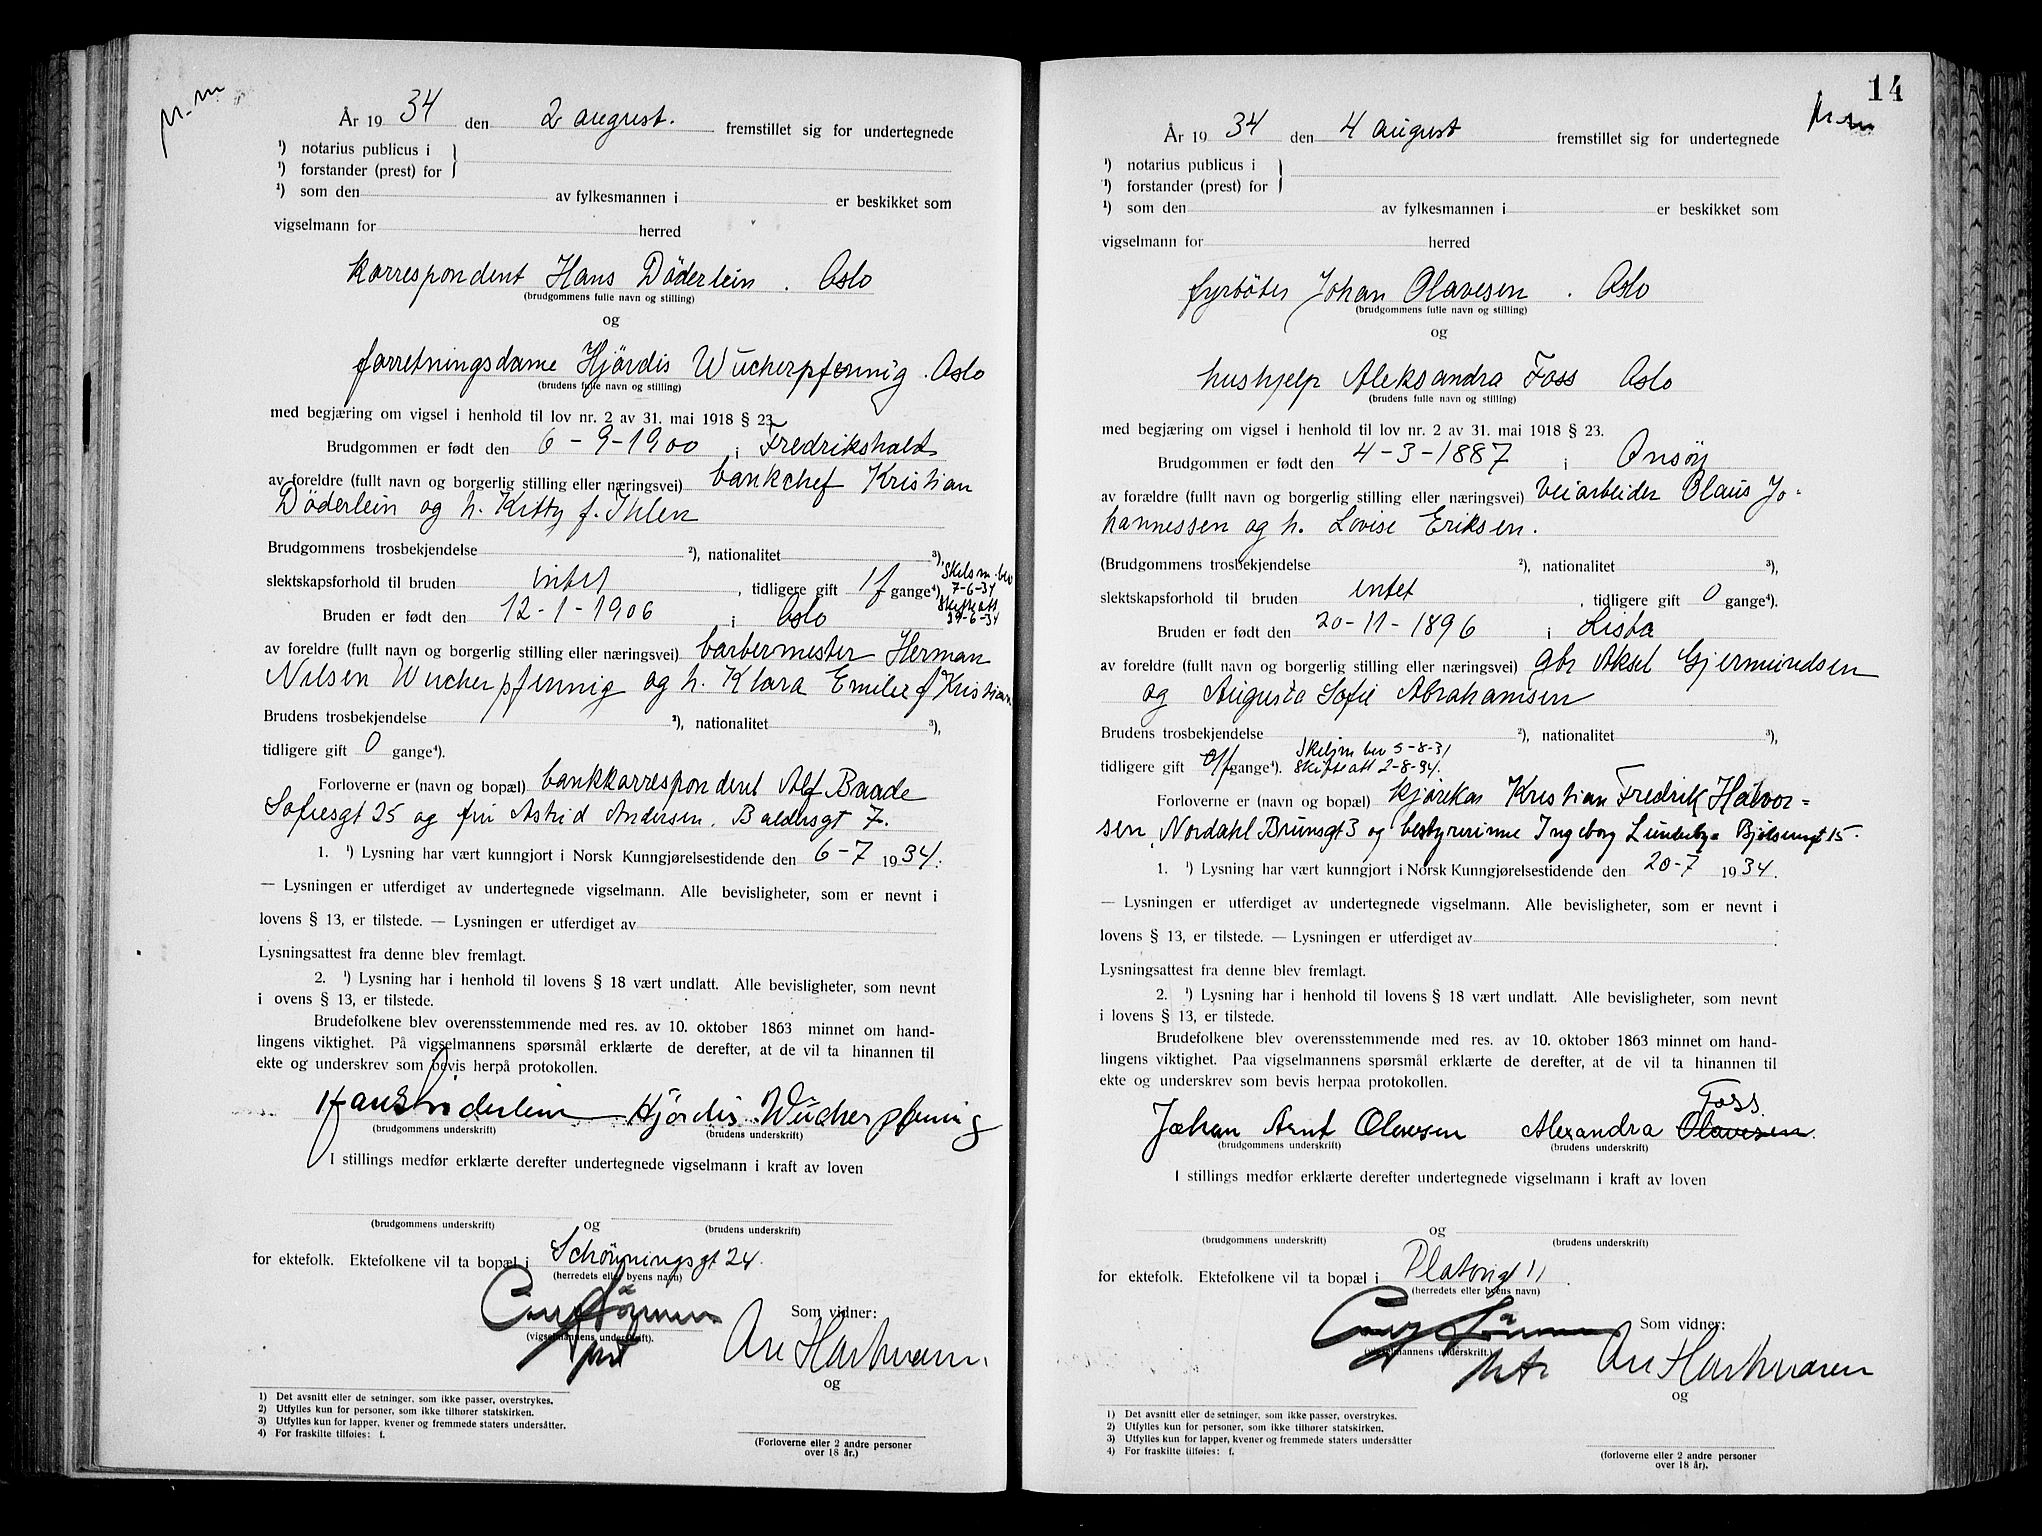 År 1934 den 2 august. fremstillet sig for undertegnede
¹) notarius publicus i
¹) forstander (prest) for
¹) som den av fylkesmannen i er beskikket som
vigselmann for herred
korrespondent Hans Döderlein. Oslo
(brudgommens fulle navn og stilling)
og
forretningsdame Hjördis Wucherpfennig. Oslo
(brudens fulle navn og stilling)
med begjæring om vigsel i henhold til lov nr. 2 av 31. mai 1918 § 23.
Brudgommen er født den 6-9-1900 i Fredrikshald
av foreldre (fullt navn og borgerlig stilling eller næringsvei) bankchef Kristian
Döderlein og h. Kitty f. Ihlen
Brudgommens trosbekjendelse ²), nationalitet ³),
slektskapsforhold til bruden intet, tidligere gift 1 f gange⁴). Skilsm. bev 7-6-34
Bruden er født den 12-1-1906 i Oslo Skifteatt 29-6-34
av foreldre (fullt navn og borgerlig stilling eller næringsvei) barbermester Herman
Nilsen Wucherpfennig og h. Klara Emilie f Kristian
Brudens trosbekjendelse ²), nationalitet ³),
tidligere gift 0 gange⁴).
Forloverne er (navn og bopæl) bankkorrespondent Alf Baade
Sofiesgt 25 og fru Astrid Andersen. Baldersgt 7.
1. ¹) Lysning har vært kunngjort i Norsk Kunngjørelsestidende den 6-7 1934.
— Lysningen er utferdiget av undertegnede vigselmann. Alle bevisligheter, som er nevnt i
lovens § 13, er tilstede. — Lysningen er utferdiget av
Lysningsattest fra denne blev fremlagt.
2. ¹) Lysning har i henhold til lovens § 18 vært undlatt. Alle bevisligheter, som nevnt
i ovens § 13, er tilstede.
Brudefolkene blev overensstemmende med res. av 10. oktober 1863 minnet om hand-
lingens viktighet. På vigselmannens spørsmål erklærte de derefter, at de vil ta hinannen til
ekte og underskrev som bevis herpå protokollen.
Hans Döderlein Hjördis Wucherpfennig
(brudgommens underskrift) (brudens underskrift)
I stillings medfør erklærte derefter undertegnede vigselmann i kraft av loven
og
(brudgommens underskrift) (brudens underskrift)
for ektefolk. Ektefolkene vil ta bopæl i Schönningsgt 24.
(herredets eller byens navn)
Som vidner:
(vigselmannens underskrift).
Are Hartmann.
og
1) Det avsnitt eller de setninger, som ikke passer, overstrykes.
2) Utfylles kun for personer, som ikke tilhører statskirken.
3) Utfylles kun for lapper, kvener og fremmede staters undersåtter.
4) For fraskilte tilføies: f.
(Forloverne eller 2 andre personer
over 18 år.)
14
År 1934 den 4 august fremstillet sig for undertegnede
¹) notarius publicus i
¹) forstander (prest) for
¹) som den av fylkesmannen i er beskikket som
vigselmann for herred
fyrböter Johan Olavesen. Oslo
(brudgommens fulle navn og stilling)
og
hushjelp Aleksandra Foss Oslo
(brudens fulle navn og stilling)
med begjæring om vigsel i henhold til lov nr. 2 av 31. mai 1918 § 23.
Brudgommen er født den 4-3-1887 i Onsöy
av forældre (fullt navn og borgerlig stilling eller næringsvei) veiarbeider Olaus Jo-
hannessen og h. Lovise Eriksen.
(Brudgommens trosbekjendelse ²), nationalitet ³),
slektskapsforhold til bruden intet, tidligere gift 0 gange⁴).
Bruden er født den 20-11-1896 i Lista
av foreldre (fullt navn og borgerlig stilling eller næringsvei) gbr Aksel Gjermundsen
og Augusta Sofie Abrahamsen
Brudens trosbekjendelse ²), nationalitet ³),
tidligere gift 1f gange⁴). Skilsm bev 5-8-31 Skifteatt 2-8-34.
Forloverne er (navn og bopæl) kjörekar Kristian Fredrik Halvor=
sen, Nordahl Brunsgt 3 og bestyrerinne Ingeborg Lunderbye Bjölsengt 15.
1. ¹) Lysning har vært kunngjort i Norsk Kunngjørelsestidende den 20-7 1934.
— Lysningen er utferdiget av undertegnede vigselmann. Alle bevisligheter, som er nevnt i
lovens § 13, er tilstede. — Lysningen er utferdiget av
Lysningsattest fra denne blev fremlagt.
2. ¹) Lysning har i henhold til lovens § 18 vært undlatt. Alle bevisligheter, som nevnt
i lovens § 13, er tilstede.
Brudefolkene blev overensstemmende med res. av 10. oktober 1863 minnet om hand-
lingens viktighet. Paa vigselmannens spørsmål erklærte de derefter, at de vil ta hinannen til
ekte og underskrev som bevis herpaa protokollen.
Foss
Johan Arnt Olavesen Alexandra Olavesen.
(brudgommens underskrift) (brudens underskrift)
I stillings medfør erklærte derefter undertegnede vigselmann i kraft av loven
og
(brudgommens underskrift) (brudens underskrift)
for ektefolk. Ektefolkene vil ta bopæl i Platousgt 11.
(herredets eller byens navn)
Som vidner:
(vigselmannens underskrift.)
og
1) Det avsnitt eller de setninger, som ikke passer, overstrykes.
2) Utfylles kun for personer, som ikke tilhører statskirken.
3) Utfylles kun for lapper, kvener og fremmede staters undersåtter
4) For fraskilte tilføies: f.
(forloverne eller 2 andre personer
over 18 år.)